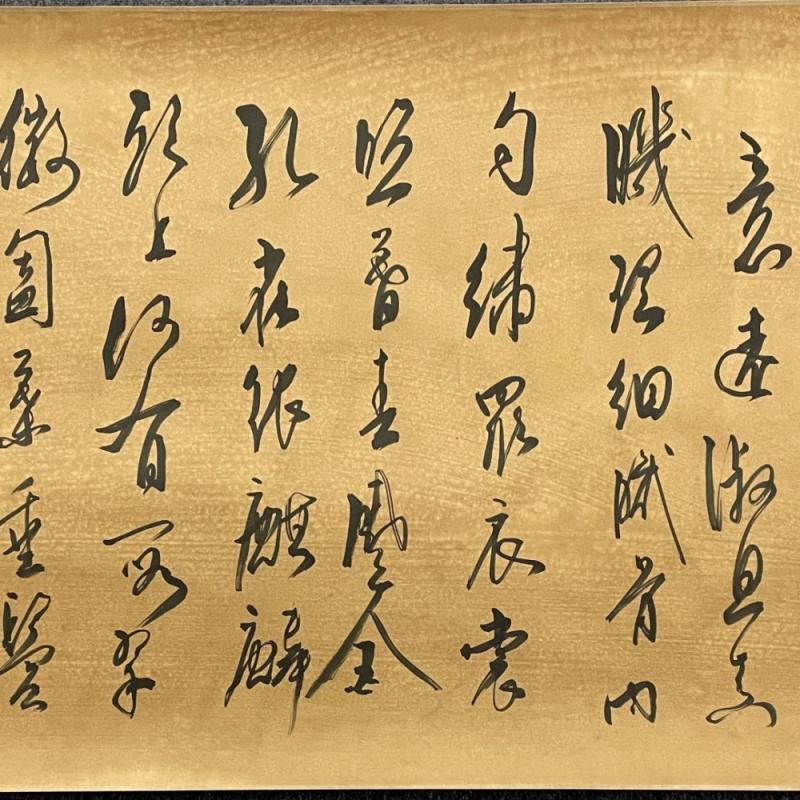 意遠淑且真
理細膩骨肉
勻繡羅衣裳
照暮春蹙金
孔雀銀麒麟
頭上何有所翠
微㔩葉垂鬢